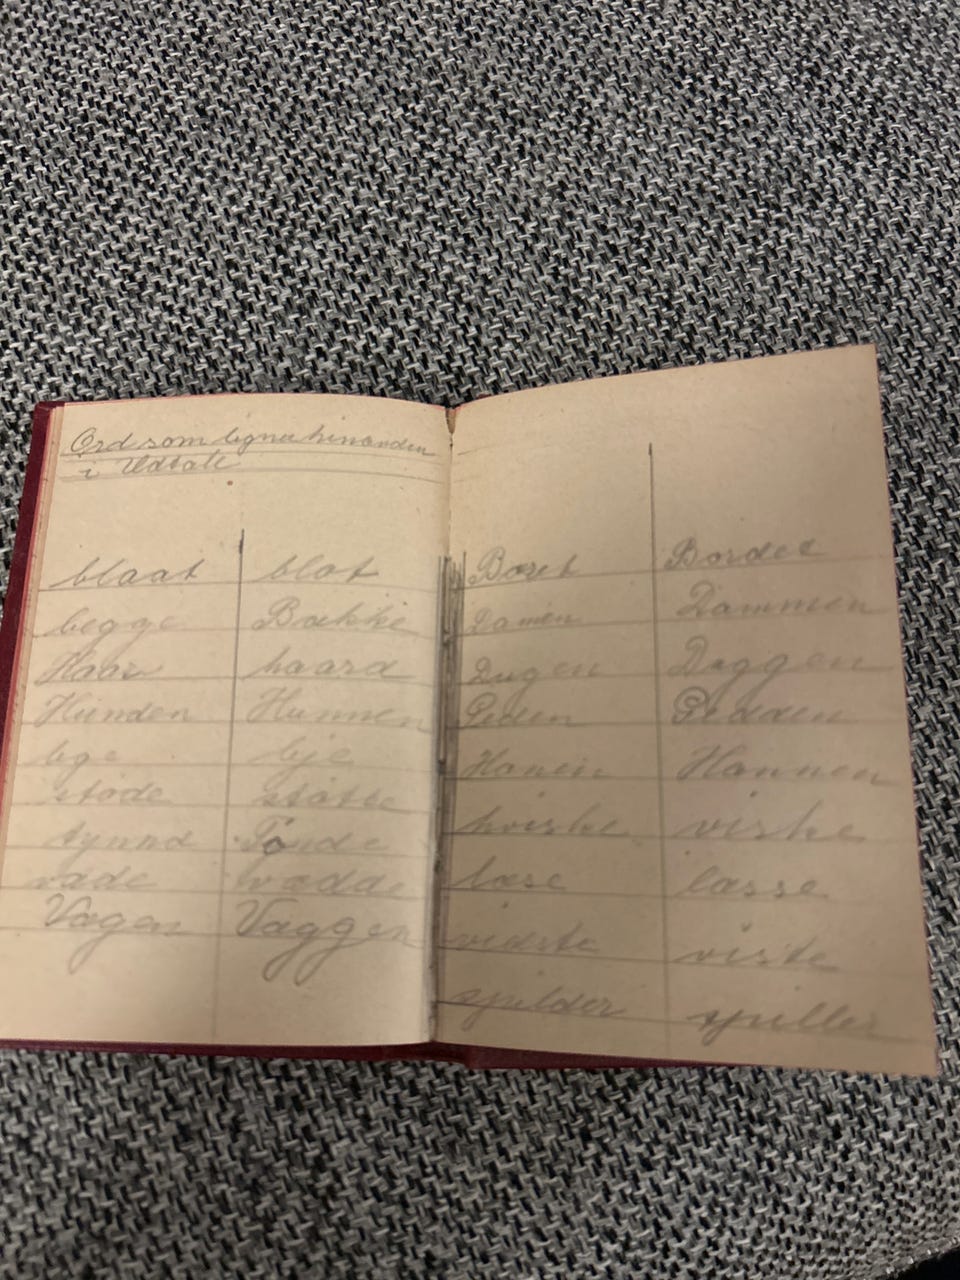 Ord som ligner hinanden
i Udtale
blaat blot
begge Bække
Haar haard
Hunden Hunnen
lige lje
støde støtte
tynd Tønde
vade vadde
Vagen Vaggen
Boret Bordet
Damen Dammen
Dugen Duggen
Geden Gedden
Hanen Hannen
hviske viske
læse læsse
vidste viste
spilder spiller